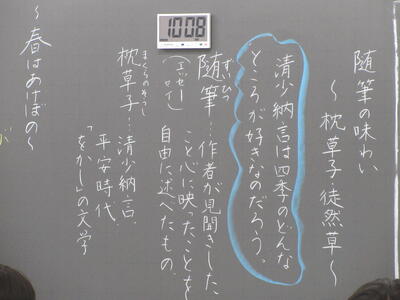 随筆の味わい
～枕草子・徒然草～
清少納言は四季のどんな
ところが好きなのだろう。
ずいひつ
随筆…作者が見聞きした
(エッセイ)
こと心に映ったことを
自由に述べたもの。
まくらのそうし
枕草子…清少納言.
平安時代.
「をかし」の文学
～春はあけぼの～
10:08